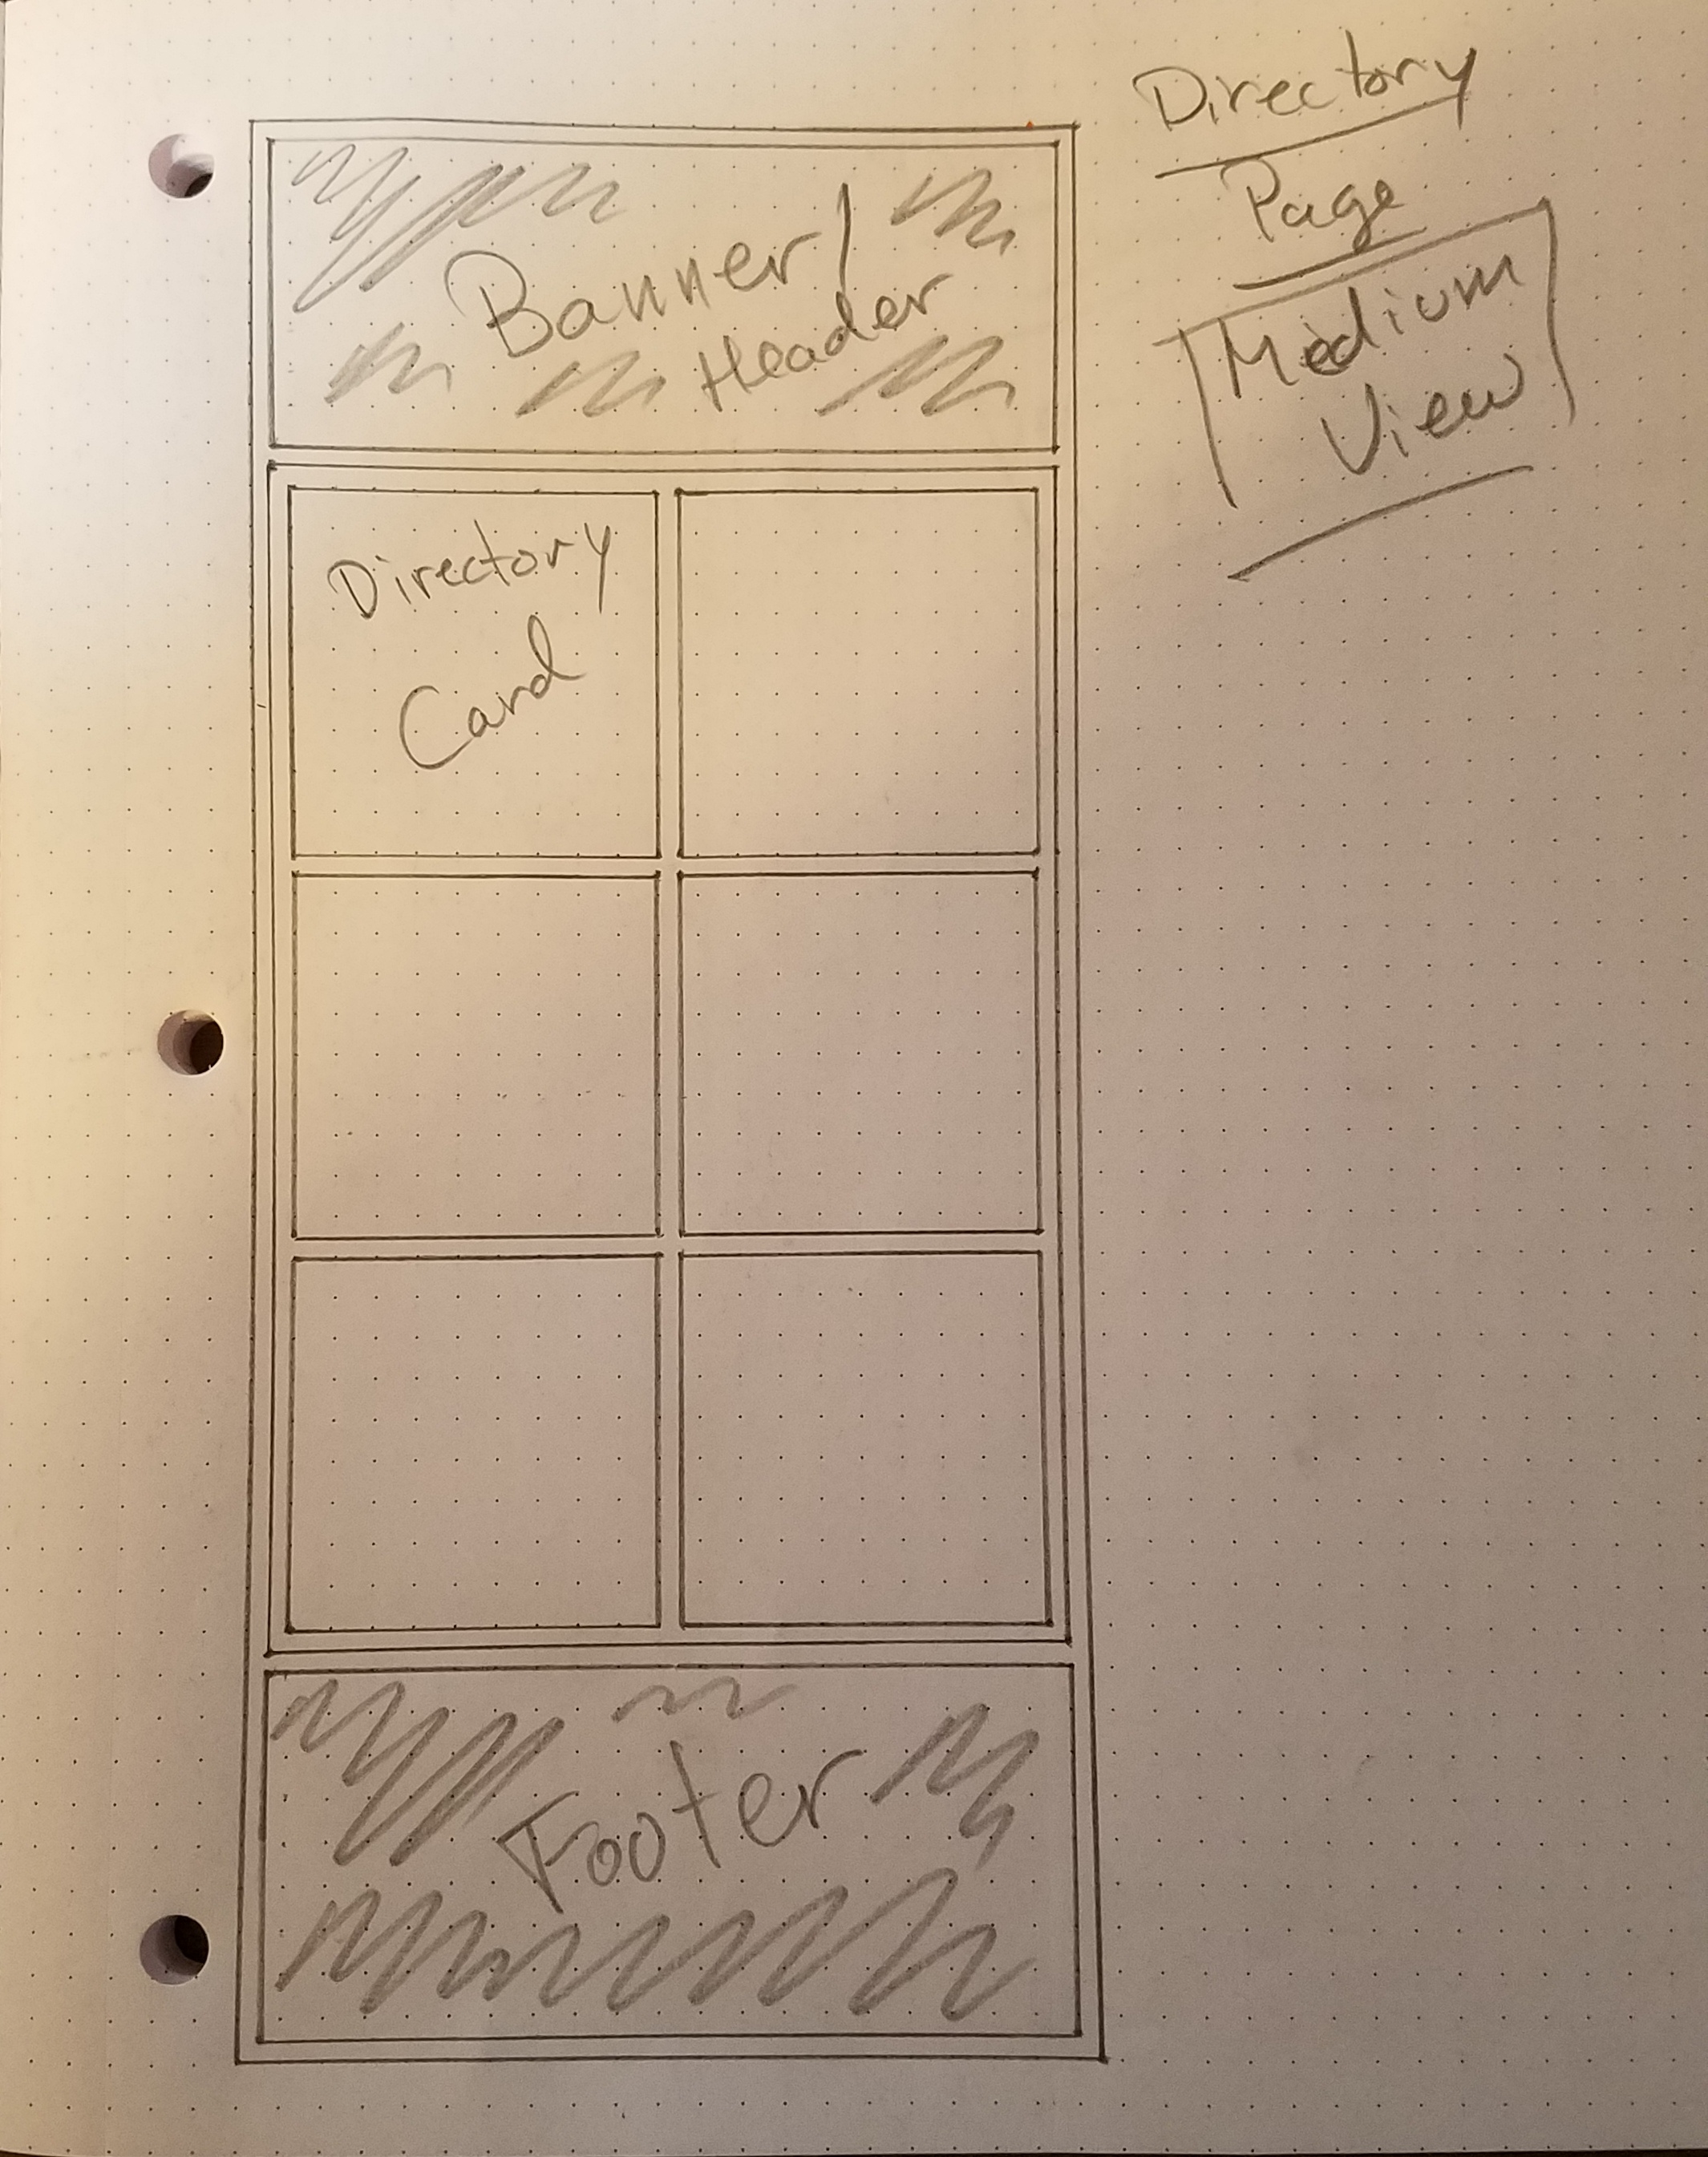 Directory
Page
Medium
View
Banner/
Header
Directory
Card
Footer